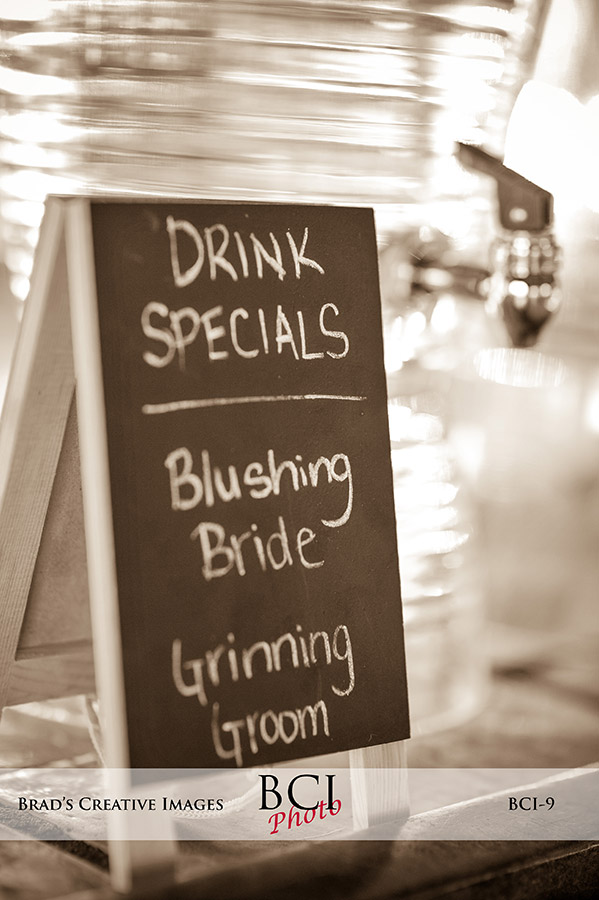 DRINK
SPECIALS
Blushing
Bride
Grinning
Groom
BRAD'S CREATIVE IMAGES
BCI
Photo
BCI-9